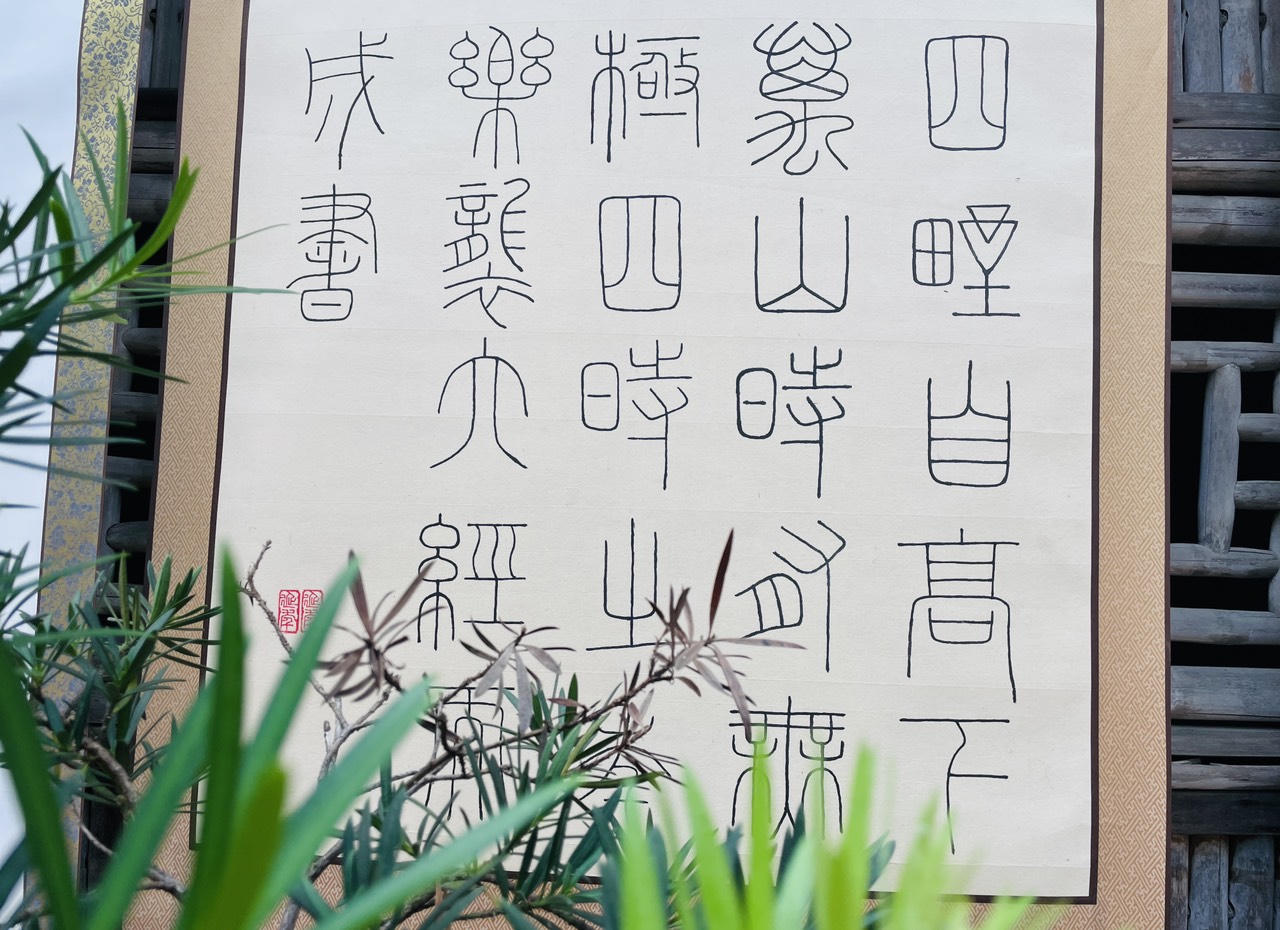 四野自高下
萬山時有無
極四時之
樂襲六經
成書